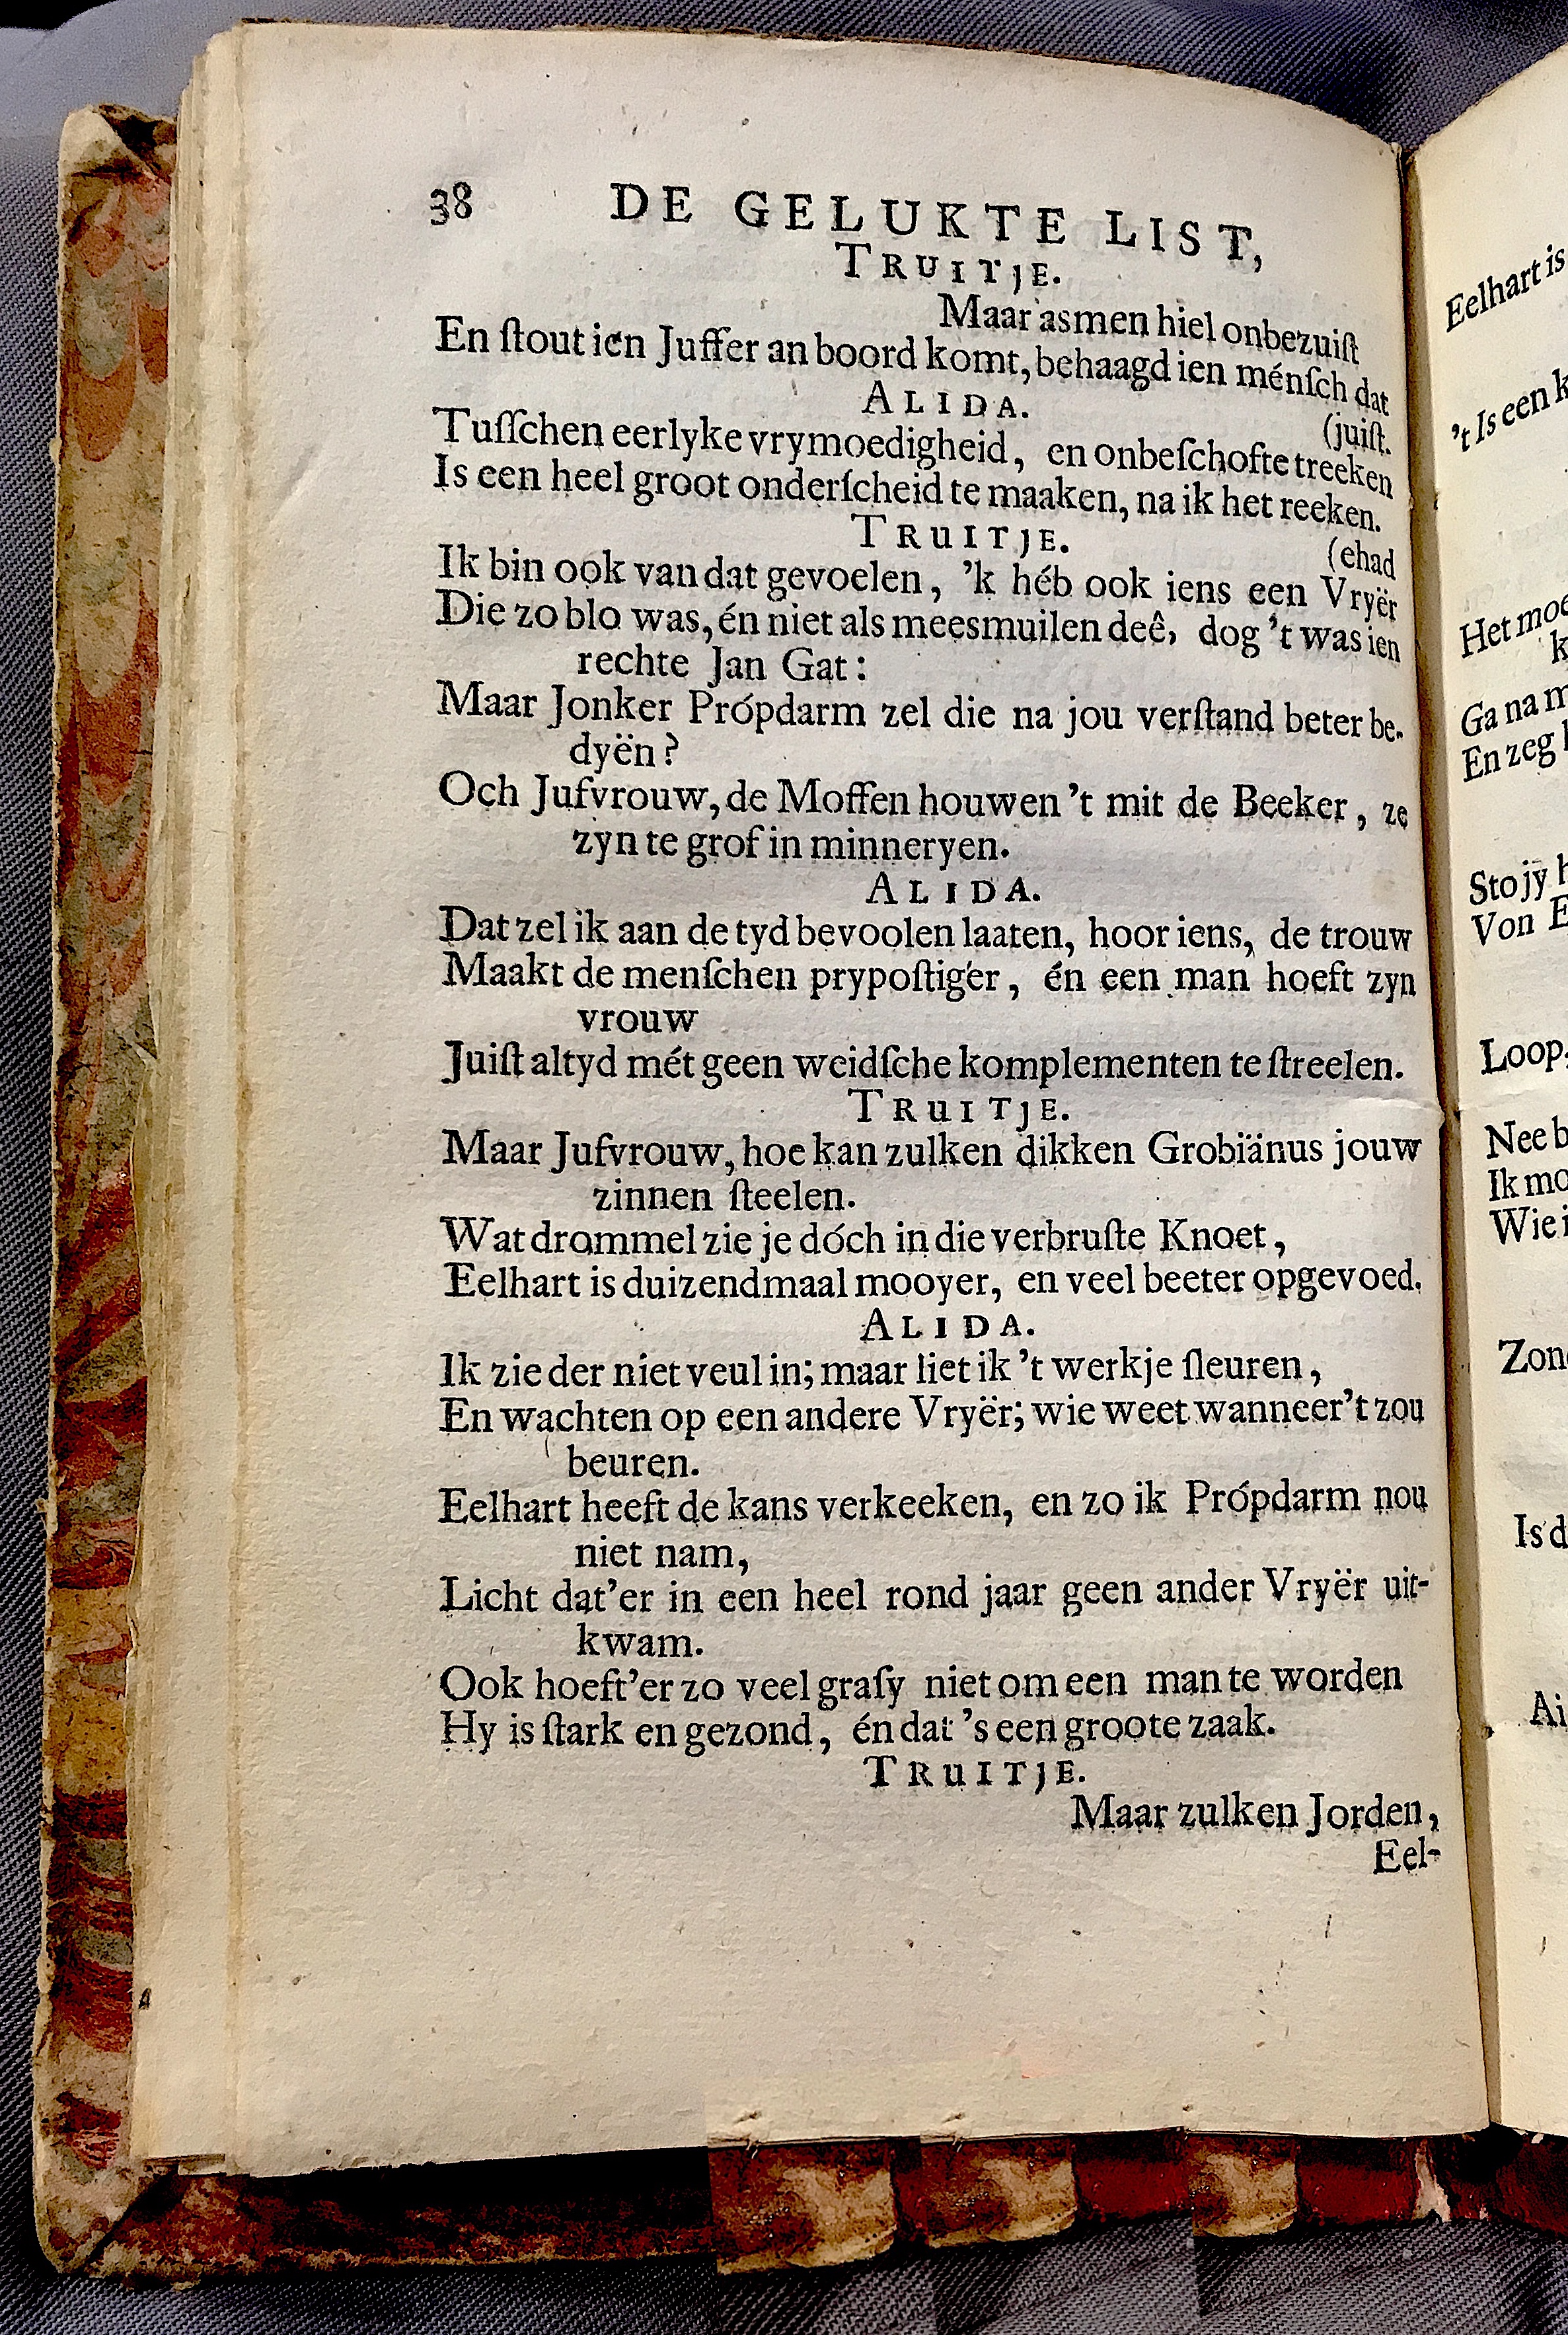 38 DE GELUKTE LIST,
TRUITJE.
Maar asmen hiel onbezuiſt
En ſtout ien Juffer an boord komt, behaagd ien ménſch dat
ALIDA. (juiſt.
Tuſſchen eerlyke vrymoedigheid, en onbeſchofte treeken
Is een heel groot onderſcheid te maaken, na ik het reeken.
TRUITJE. (ehad
Ik bin ook van dat gevoelen, 'k héb ook iens een Vryër
Die zo blo was, én niet als meesmuilen deê, dog 't was ien
rechte Jan Gat:
Maar Jonker Própdarm zel die na jou verſtand beter be-
dyën?
Och Jufvrouw, de Moffen houwen 't mit de Beeker, ze
zyn te grof in minneryen.
ALIDA.
Dat zel ik aan de tyd bevoolen laaten, hoor iens, de trouw
Maakt de menſchen prypoſtiger, én een man hoeft zyn
vrouw
Juiſt altyd mét geen weidſche komplementen te ſtreelen.
TRUITJE.
Maar Jufvrouw, hoe kan zulken dikken Grobiänus jouw
zinnen ſteelen.
Wat drommel zie je dóch in die verbruſte Knoet,
Eelhart is duizendmaal mooyer, en veel beeter opgevoed.
ALIDA.
Ik zie der niet veul in; maar liet ik 't werkje ſleuren,
En wachten op een andere Vryër; wie weet wanneer't zou
beuren.
Eelhart heeft de kans verkeeken, en zo ik Própdarm nou
niet nam,
Licht dat'er in een heel rond jaar geen ander Vryër uit-
kwam.
Ook hoeft'er zo veel graſy niet om een man te worden
Hy is ſtark en gezond, én dat 's een groote zaak.
TRUITJE.
Maar zulken Jorden,
Eel-
Eelhart is
't Is een
Het moe
Ga na m
En zeg
Sto jy
Von E
Loop,
Nee b
Ik mo
Wie i
Zon
Is d
Ai